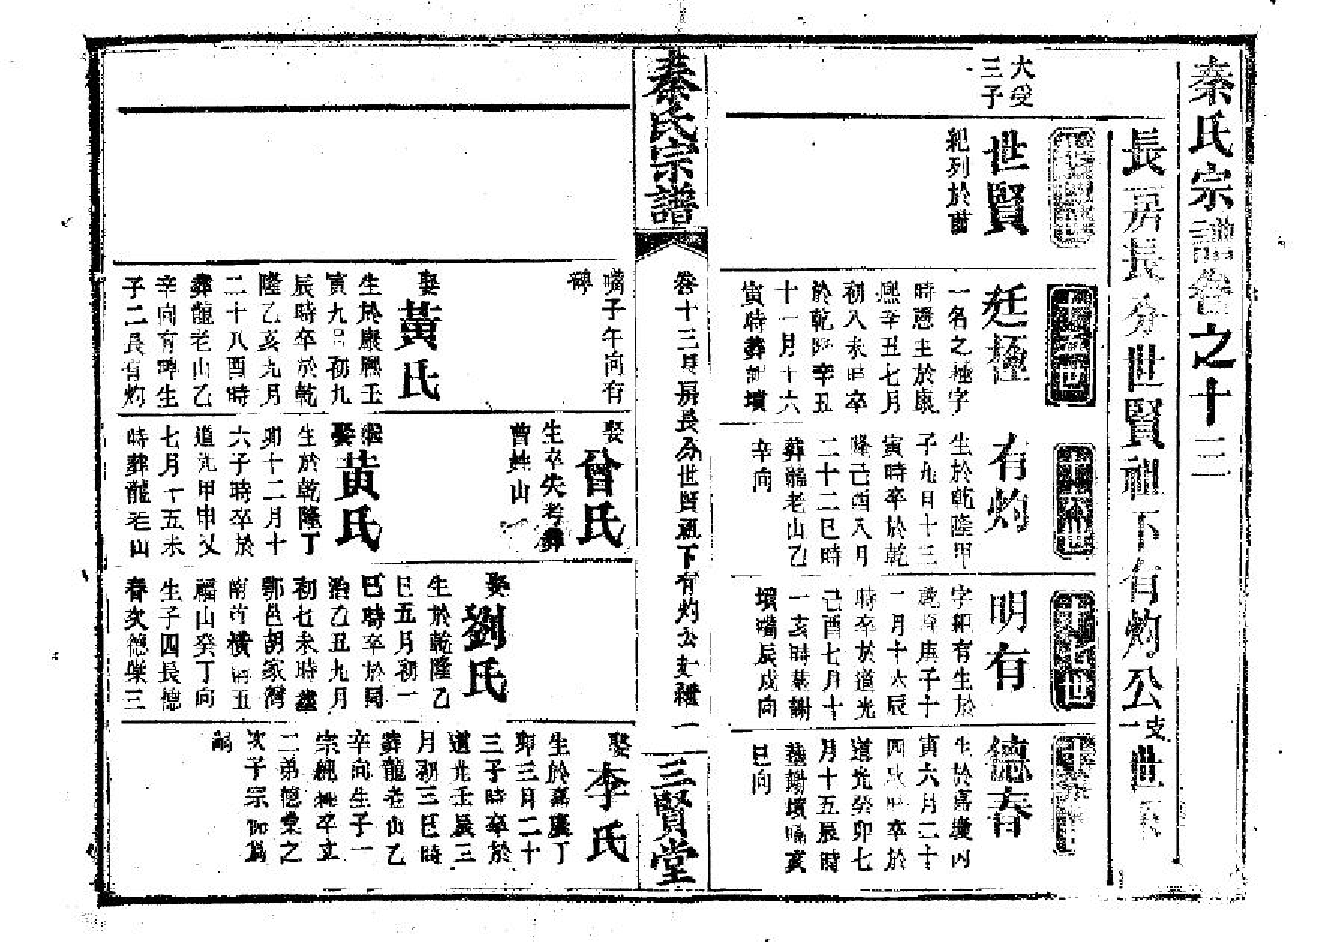 秦氏宗譜卷之十三
長房長分世賢祖下有灼公一支世系
大受
三子
世賢
紀列於前
廷極
一名之極字
時應生於康
熙辛丑七月
初八未時卒
於乾隆辛丑
十一月十六
寅時葬謝墳
嘴子午向有
碑
娶
黃氏
生於康熙壬
寅九月初九
辰時卒於乾
隆乙亥九月
二十八酉時
葬龍老山乙
辛向有碑生
子二長有灼
有灼
生於乾隆甲
子九月十三
寅時卒於乾
隆己酉八月
二十二巳時
葬龍老山乙
辛向
娶
曾氏
生卒失考葬
曹婆山
繼娶
黃氏
生於乾隆丁
卯十二月十
六子時卒於
道光甲申又
七月十五未
時葬龍老山
明有
字紹有生於
乾隆庚子十
一月十六辰
時卒於道光
己酉七月十
一亥時葬謝
墳嘴辰戌向
娶
劉氏
生於乾隆乙
巳五月初一
巳時卒於同
治乙丑九月
初七未時葬
鄂邑胡家灣
南竹橫山五
福山癸丁向
生子四長德
春次德榮三
德春
生於嘉慶丙
寅六月二十
四戌時卒於
道光癸卯七
月十五辰時
葬謝墳嘴亥
巳向
娶
李氏
生於嘉慶丁
卯三月二十
三子時卒於
道光壬辰三
月初三巳時
葬龍老山乙
辛向生子一
宗純純卒立
二弟德榮之
次子宗 為
嗣
秦氏宗譜
卷十三長房長分世賢祖下有灼公支禮 一
三賢堂